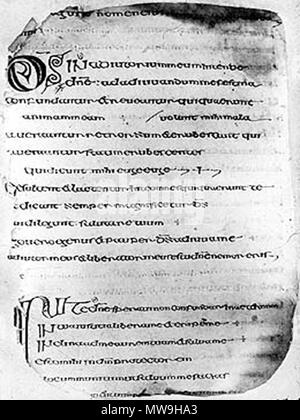 nomen
DS IN adiutorium meum intende
dne ad adiuuandum me festina
Confundantur & reueantur qui quaerunt
animam meam uolunt mihi mala
auertantur retrorsum & erubescant qui
auertantur statim erubescentes
qui dicunt mihi euge euge
Exultent & laetentur in te omnes qui quaerunt te
& dicant semper magnificetur ds
qui diligunt salutare tuum
ego uero egenus & pauper ds adiuua me
adiutor meus & liberator meus es tu dne ne moreris
IN te dne speraui non confundar in aeternum
in tua libera me & eripe me
inclina ad me aurem tuam & salua me
esto mihi in dm protectorem
locum munitum ut saluum me facias